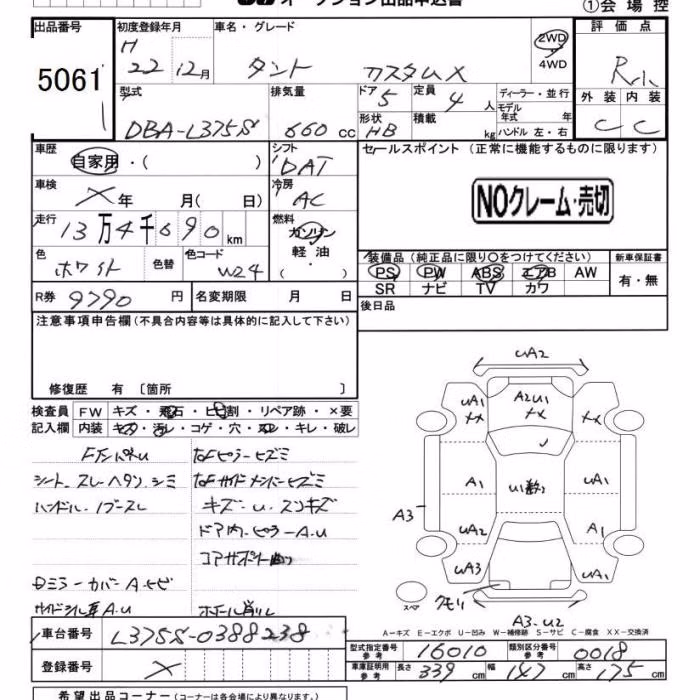 オークション出品申込書 ①会場控
出品番号 5061
初度登録年月 H 22 12月
車名・グレード タント カスタムX
2WD・4WD
評価点 R小
外装 C 内装 C
型式 DBA-L375S
排気量 660 cc
ドア 5 定員 4 人
形状 HB 積載 kg
ディーラー・並行
モデル年式 年
ハンドル 左・右
車歴 自家用・( )
シフト DAT
車検 X 年 月( 日)
冷房 AC
走行 13万4千690 km
燃料 ガソリン 軽油 ・( )
色 ホワイト 色替 色コード W24
R券 9790 円 名変期限 月 日
セールスポイント (正常に機能するものに限ります)
NOクレーム・売切
装備品 (純正品に限り○をつけてください) 新車保証書
PS PW ABS エアB AW 有・無
SR ナビ TV カワ
後日品
注意事項申告欄 (不具合内容等は具体的に記入して下さい)
修復歴 有 〔箇所 〕
検査員 FW キズ・飛石・ヒビ割・リペア跡・×要
記入欄 内装 キズ・汚レ・コゲ・穴・スレ・キレ・破レ
シート スレ・ヘタリ・シミ
ハンドル・ノブスレ
キズ・U・スリキズ
ドア内・ピラーA.U
コアサポート曲り
Dミラーカバー A.ヒビ
サイドシル左 A.U
ホール削レ
UA2
UA1 A2U1
XX XX XX
A1 U1数 UA1
A3
UA2 A1
UA3 UA1
スペア クモリ
A3-U2
A-キズ E-エクボ U-凹み W-補修跡 S-サビ C-腐食 XX-交換済
車台番号 L375S-0388238
登録番号 X
型式指定番号 参考 16010 類別区分番号 参考 0018
車庫証明用 参考 長さ 339 cm 幅 147 cm 高さ 175 cm
希望出品コーナー (コーナーは各会場により異なります。)